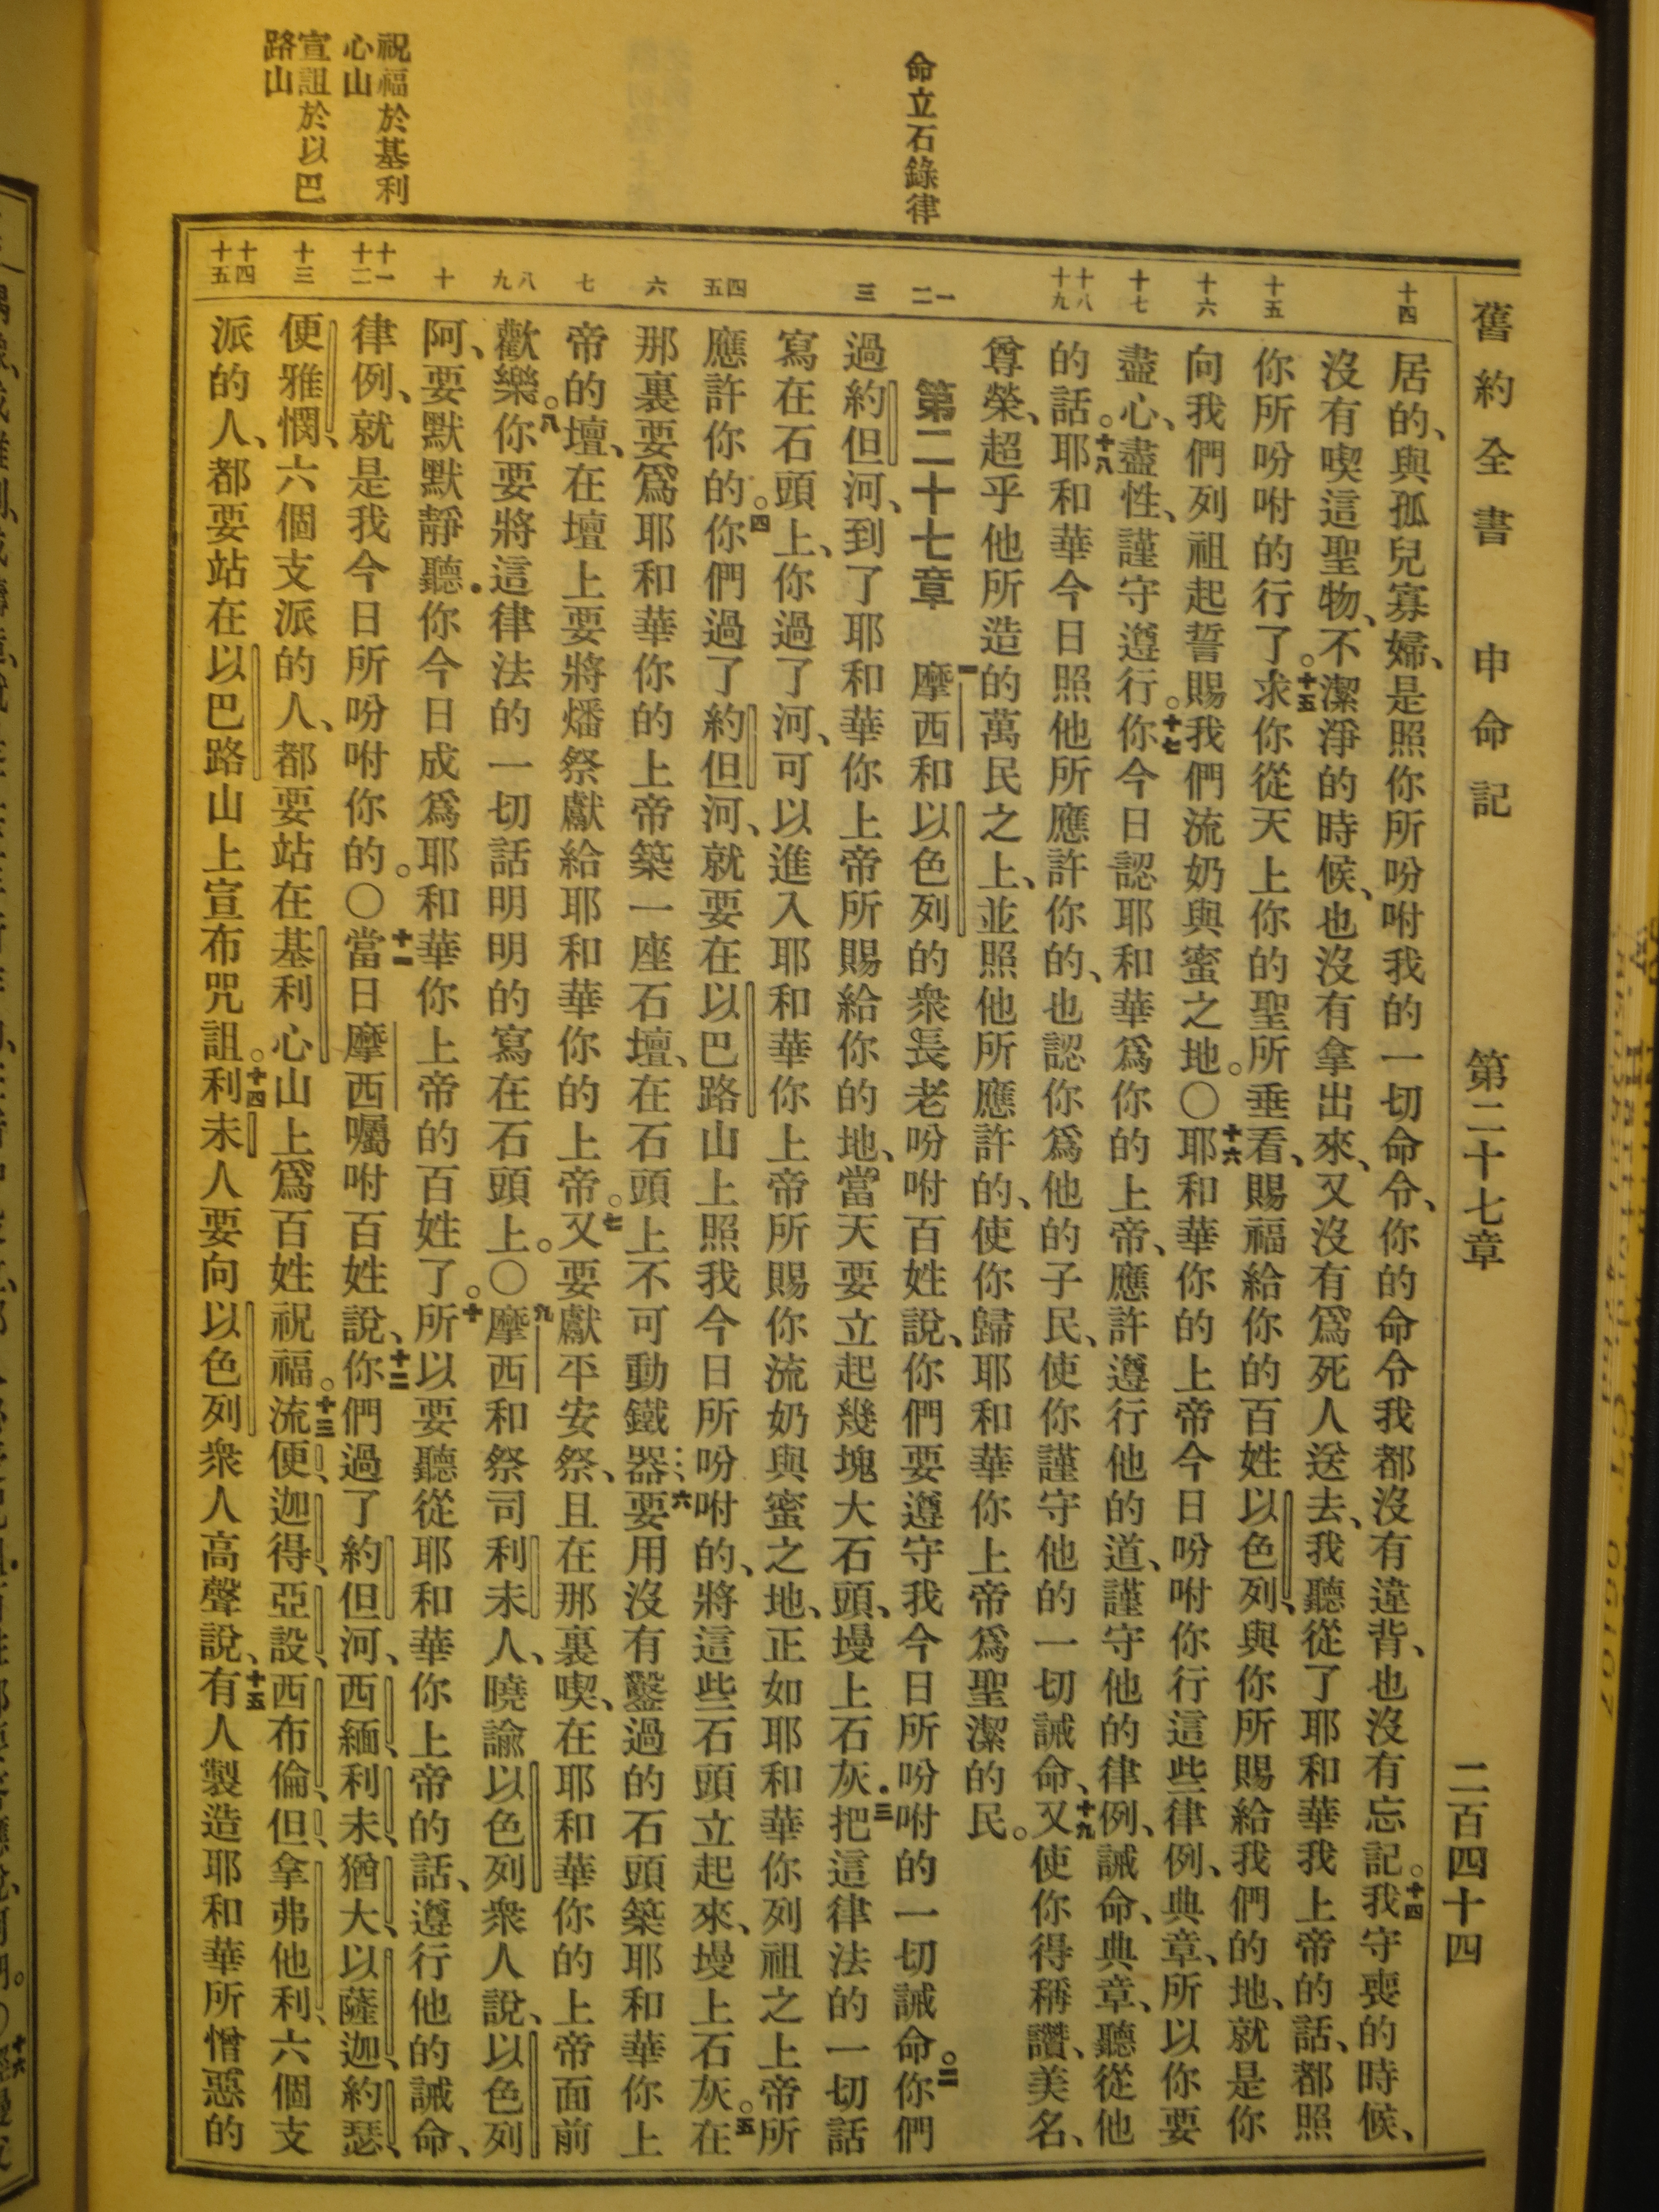 舊約全書　申命記　第二十七章　二百四十四
命立石錄律
祝福於基利
心山
宣詛於以巴
路山
十四
十五
十六
十七
十八
十九
一
二
三
四
五
六
七
八
九
十
十一
十二
十三
十四
十五
居的、與孤兒寡婦、是照你所吩咐我的一切命令、你的命令我都沒有違背、也沒有忘記。十四我守喪的時候、
沒有喫這聖物、不潔淨的時候、也沒有拿出來、又沒有爲死人送去、我聽從了耶和華我上帝的話、都照
你所吩咐的行了。十五求你從天上你的聖所垂看、賜福給你的百姓以色列、與你所賜給我們的地、就是你
向我們列祖起誓賜我們流奶與蜜之地。○十六耶和華你的上帝今日吩咐你行這些律例、典章、所以你要
盡心、盡性、謹守遵行。十七你今日認耶和華爲你的上帝、應許遵行他的道、謹守他的律例、誡命、典章、聽從他
的話。十八耶和華今日照他所應許你的、也認你爲他的子民、使你謹守他的一切誡命、十九又使你得稱讚、美名、
尊榮、超乎他所造的萬民之上、並照他所應許的、使你歸耶和華你上帝爲聖潔的民。
第二十七章　一摩西和以色列的衆長老吩咐百姓說、你們要遵守我今日所吩咐的一切誡命。二你們
過約但河、到了耶和華你上帝所賜給你的地、當天要立起幾塊大石頭、墁上石灰．三把這律法的一切話
寫在石頭上、你過了河、可以進入耶和華你上帝所賜你流奶與蜜之地、正如耶和華你列祖之上帝所
應許你的。四你們過了約但河、就要在以巴路山上照我今日所吩咐的、將這些石頭立起來、墁上石灰。五在
那裏要爲耶和華你的上帝築一座石壇、在石頭上不可動鐵器．六要用沒有鑿過的石頭築耶和華你上
帝的壇、在壇上要將燔祭獻給耶和華你的上帝。七又要獻平安祭、且在那裏喫、在耶和華你的上帝面前
歡樂。八你要將這律法的一切話明明的寫在石頭上。○九摩西和祭司利未人、曉諭以色列衆人說、以色列
阿、要默默靜聽．你今日成爲耶和華你上帝的百姓了。十所以要聽從耶和華你上帝的話、遵行他的誡命、
律例、就是我今日所吩咐你的。○十一當日摩西囑咐百姓說、十二你們過了約但河、西緬、利未、猶大、以薩迦、約瑟、
便雅憫、六個支派的人、都要站在基利心山上爲百姓祝福。十三流便、迦得、亞設、西布倫、但、拿弗他利、六個支
派的人、都要站在以巴路山上宣布咒詛。十四利未人要向以色列衆人高聲說、十五有人製造耶和華所憎惡的